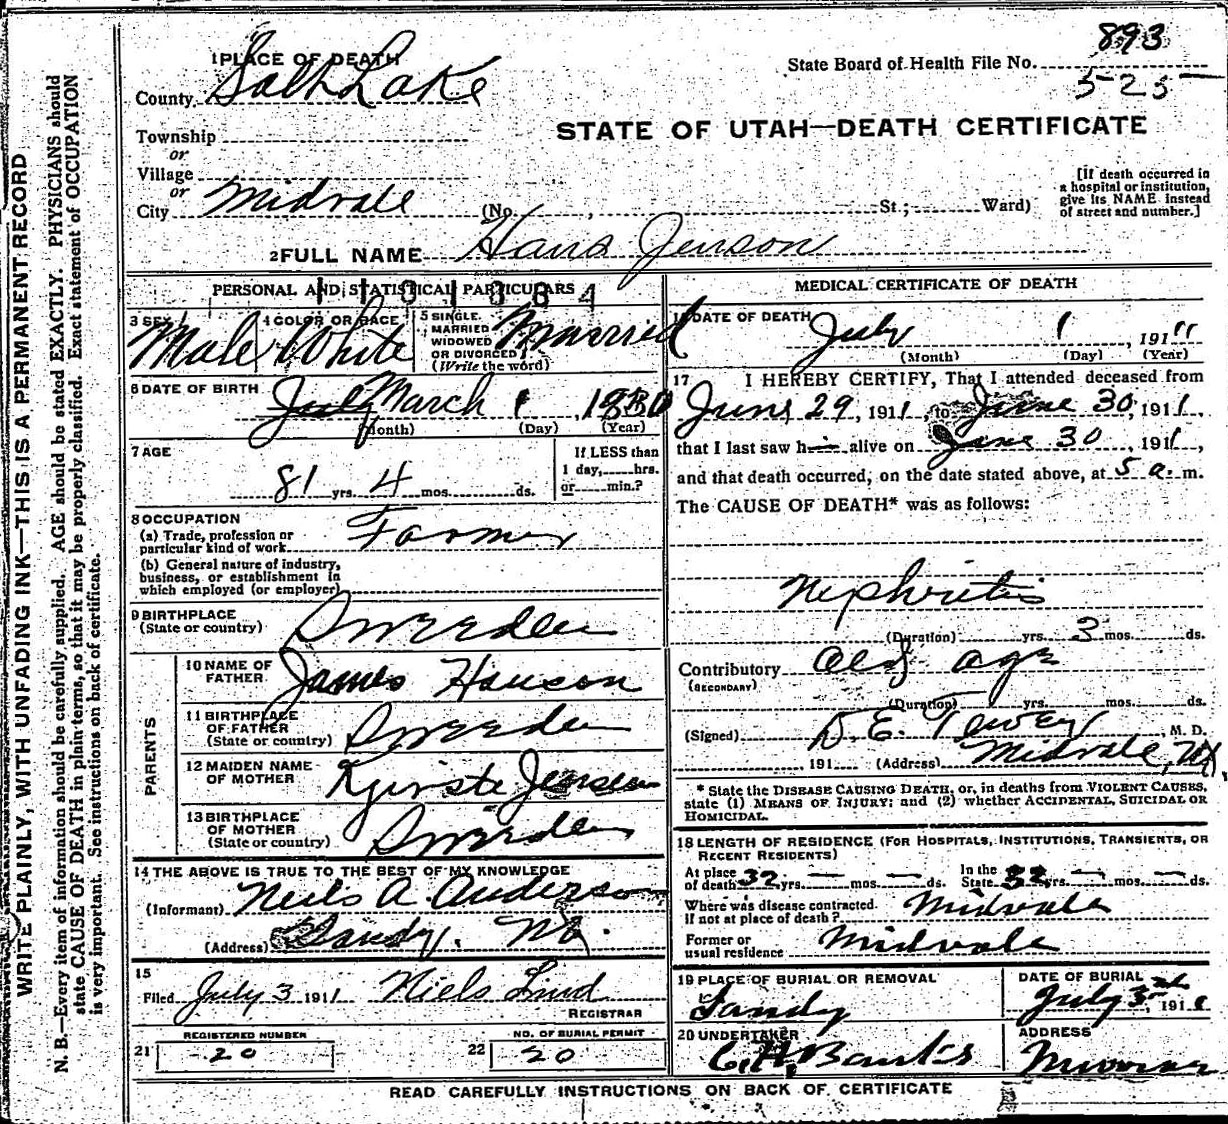 WRITE PLAINLY, WITH UNFADING INK—THIS IS A PERMANENT RECORD
N. B.—Every item of information should be carefully supplied. AGE should be stated EXACTLY. PHYSICIANS should
state CAUSE OF DEATH in plain terms, so that it may be properly classified. Exact statement of OCCUPATION
is very important. See instructions on back of certificate.
1 PLACE OF DEATH
County Salt Lake
Township
or
Village
or
City Midvale
State Board of Health File No. 893
525
STATE OF UTAH—DEATH CERTIFICATE
(No. , St.; Ward)
[If death occurred in
a hospital or institution,
give its NAME instead
of street and number.]
2 FULL NAME Hans Jenson
PERSONAL AND STATISTICAL PARTICULARS
1101384
3 SEX Male
4 COLOR OR RACE White
5 SINGLE,
MARRIED
WIDOWED
OR DIVORCED
(Write the word)
Married
6 DATE OF BIRTH
July March 1, 1830
(Month) (Day) (Year)
7 AGE
81 yrs. 4 mos. ds.
If LESS than
1 day, hrs.
or min.?
8 OCCUPATION
(a) Trade, profession or
particular kind of work Farmer
(b) General nature of industry,
business, or establishment in
which employed (or employer)
9 BIRTHPLACE
(State or country) Sweeden
PARENTS
10 NAME OF
FATHER James Hanson
11 BIRTHPLACE
OF FATHER
(State or country) Sweeden
12 MAIDEN NAME
OF MOTHER Kjirste Jensen
13 BIRTHPLACE
OF MOTHER
(State or country) Sweeden
14 THE ABOVE IS TRUE TO THE BEST OF MY KNOWLEDGE
(Informant) Neils A. Anderson
(Address) Sandy, Ut.
15
Filed July 3 1911 Niels Lind
REGISTRAR
REGISTERED NUMBER
21 20
NO. OF BURIAL PERMIT
22 20
MEDICAL CERTIFICATE OF DEATH
16 DATE OF DEATH
July 1, 1911
(Month) (Day) (Year)
17 I HEREBY CERTIFY, That I attended deceased from
June 29, 1911, to June 30, 1911,
that I last saw him alive on June 30, 1911,
and that death occurred, on the date stated above, at 5 a. m.
The CAUSE OF DEATH* was as follows:
Nephritis
(Duration) yrs. 3 mos. ds.
Contributory Old age
(SECONDARY)
(Duration) yrs. mos. ds.
(Signed) D. E. M. D.
191 (Address) Midvale, Ut.
* State the DISEASE CAUSING DEATH, or, in deaths from VIOLENT CAUSES,
state (1) MEANS OF INJURY; and (2) whether ACCIDENTAL, SUICIDAL OR
HOMICIDAL.
18 LENGTH OF RESIDENCE (FOR HOSPITALS, INSTITUTIONS, TRANSIENTS, OR
RECENT RESIDENTS)
At place
of death 32 yrs. — mos. — ds.
In the
State 32 yrs. — mos. — ds.
Where was disease contracted.
if not at place of death? Midvale
Former or
usual residence Midvale
19 PLACE OF BURIAL OR REMOVAL
Sandy
DATE OF BURIAL
July 3, 191
20 UNDERTAKER
C. H. Banks
ADDRESS
Murray
READ CAREFULLY INSTRUCTIONS ON BACK OF CERTIFICATE